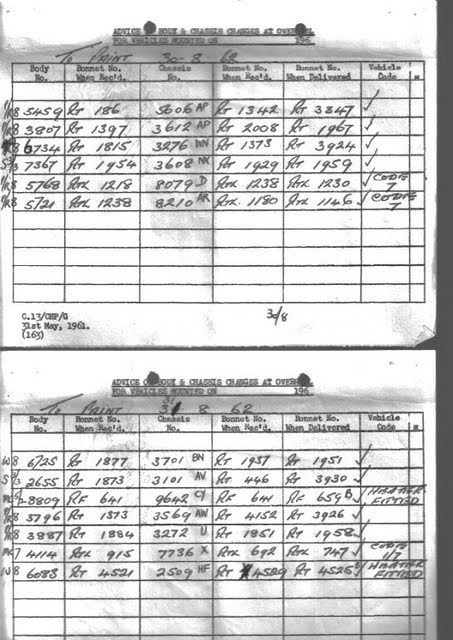 ADVICE OF BODY & CHASSIS CHANGES AT OVERHAUL
FOR VEHICLES MOUNTED ON 196
To PRINT 30 - 8 62
Body No. Bonnet No. When Rec'd. Chassis No. Bonnet No. When Rec'd. Bonnet No. When Delivered Vehicle Code *
P/R8 5459 RT 186 5606 AP RT 1342 RT 3847 ✓
P/R8 3807 RT 1397 3612 AP RT 2008 RT 1967 ✓
8 6734 RT 1815 3276 WN RT 1373 RT 3924 ✓
S3/3 7367 RT 1954 3608 NX RT 1929 RT 1959 ✓
P/R8 5768 RTL 1218 8079 D RTL 1238 RTL 1230 ✓ CODE 7
P/R8 5/21 RTL 1238 8210 AR RTL 1180 RTL 1146 ✓ CODE 7
C.13/CHF/G
31st May, 1961.
(163)
30/8
ADVICE OF BODY & CHASSIS CHANGES AT OVERHAUL
FOR VEHICLES MOUNTED ON 196
To PRINT 31 8 62
Body No. Bonnet No. When Rec'd. Chassis No. Bonnet No. When Rec'd. Bonnet No. When Delivered Vehicle Code *
W8 6/25 RT 1877 3701 BN RT 1937 RT 1951 ✓
2655 RT 1873 3101 AV RT 446 RT 3930 ✓
8809 RF 641 9642 CJ RF 641 RF 659 B ✓ HEATER FITTED
P/R8 3796 RT 1373 3569 AW RT 4152 RT 3926 ✓
P/R8 3887 RT 1884 3272 U RT 1851 RT 1958 ✓
7 4114 RTL 915 7736 X RTL 692 RTL 747 ✓ CODE 1/7
W8 6083 RT 4521 2509 HF RT 4529 RT 4525 ✓ HEATER FITTED